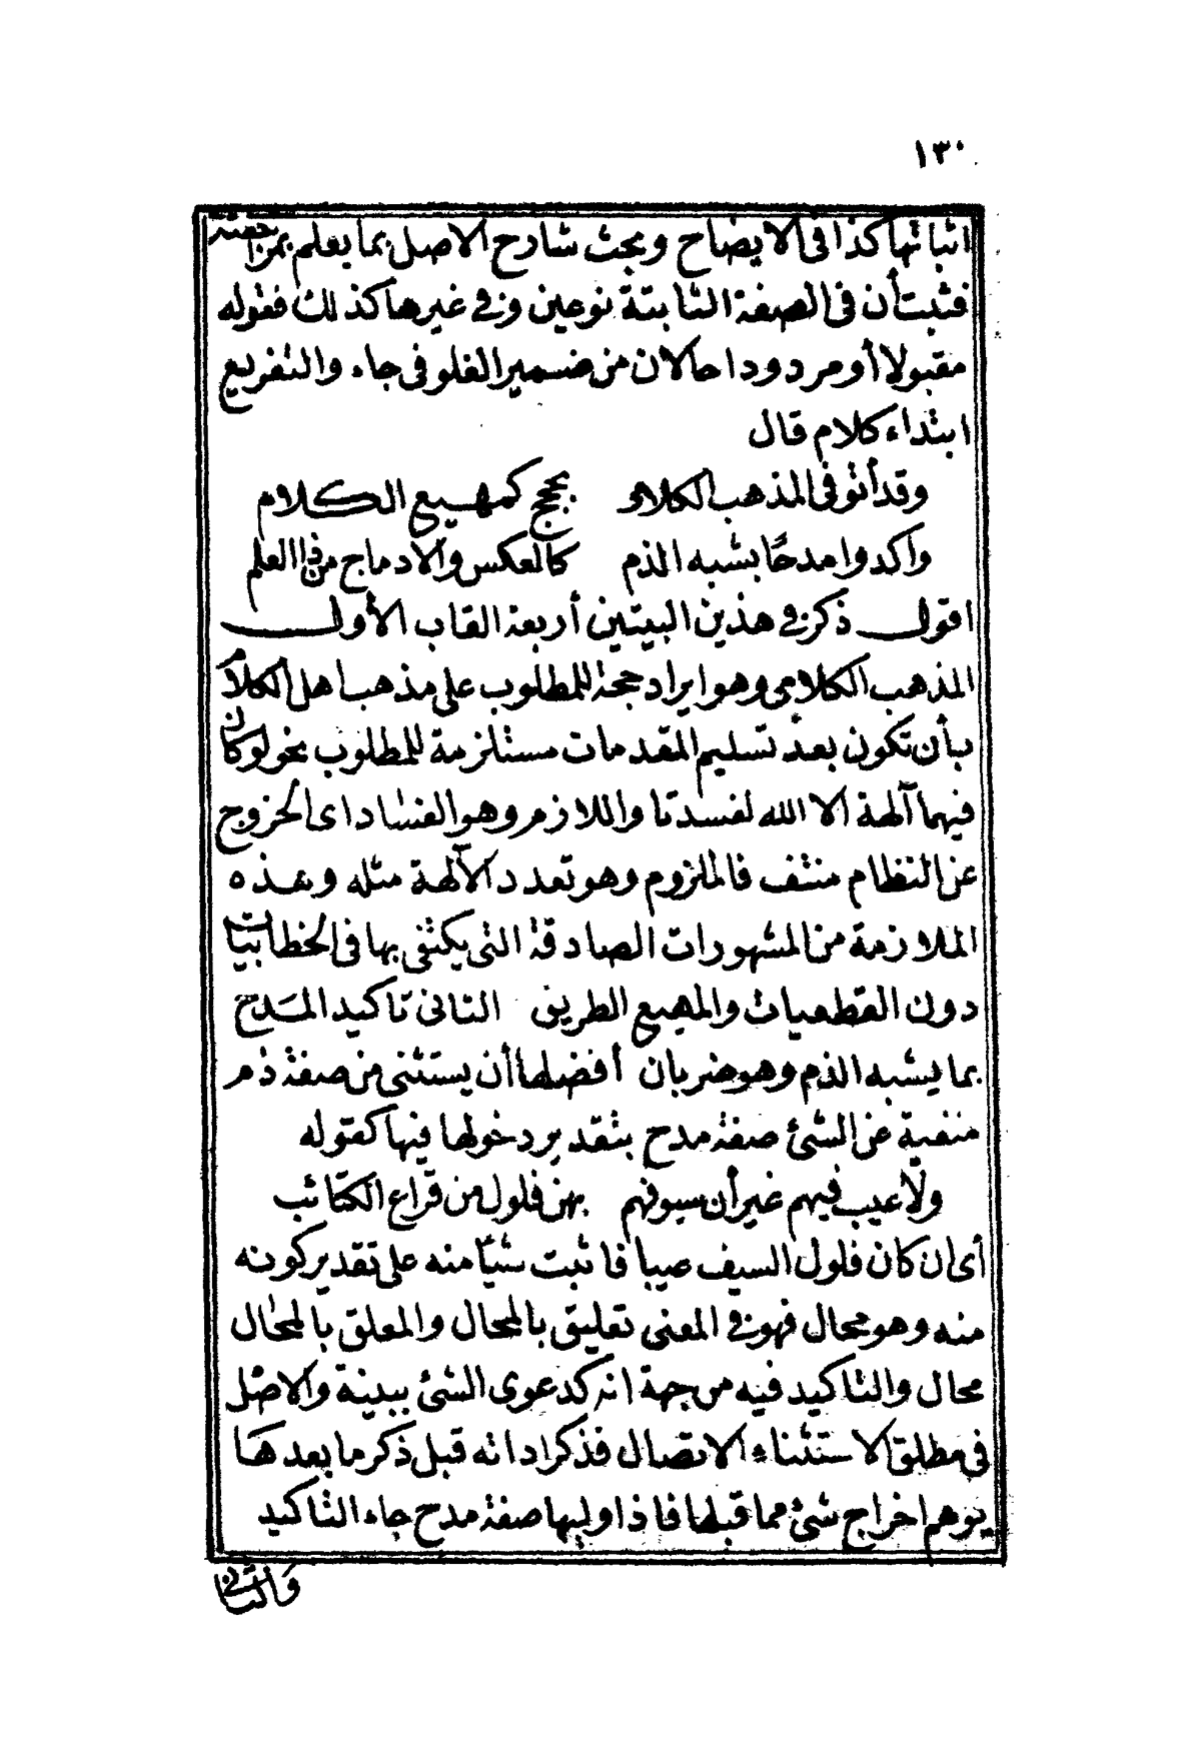 ١٣٠
اثباتها كذا فى الايضاح وبحث شارح الاصل بما يعلم بمراجعته
فثبت أن فى الصفة الثابتة نوعين وفى غيرها كذلك فقوله
مقبولا أو مردودا حالان من ضمير الغلو فى جاء والتفريع
ابتداء كلام قال
وقد أتو فى المذهب الكلامى بحجج كمهيع الكلام
واكدوا مدحًا بشبه الذم كالعكس والادماج من ذا العلم
اقول ذكر فى هذين البيتين أربعة القاب الأول
المذهب الكلامى وهو ايراد حجة للمطلوب على مذهب اهل الكلام
بأن تكون بعد تسليم المقدمات مستلزمة للمطلوب نحو لو كان
فيهما آلهة الا الله لفسدتا واللازم وهو الفساد اى الخروج
عن النظام منتف فالملزوم وهو تعدد الآلهة مثله وهذه
الملازمة من المشهورات الصادقة التى يكتفى بها فى الخطابيات
دون القطعيات والمهيع الطريق الثانى تاكيد المدح
بما يشبه الذم وهو ضربان أفضلها أن يستثنى من صفة ذم
منفية عن الشئ صفة مدح بتقدير دخولها فيها كقوله
ولا عيب فيهم غير أن سيوفهم بهن فلول من قراع الكتائب
أى ان كان فلول السيف عيبا فاثبت شيًا منه على تقدير كونه
منه وهو محال فهو فى المعنى تعليق بالمحال والمعلق بالمحال
محال والتاكيد فيه من جهة انه كدعوى الشئ ببينة والاصل
فى مطلق الاستثناء الاتصال فذكر اداته قبل ذكر ما بعدها
يوهم اخراج شئ مما قبلها فاذا وليها صفة مدح جاء التاكيد
والثانى